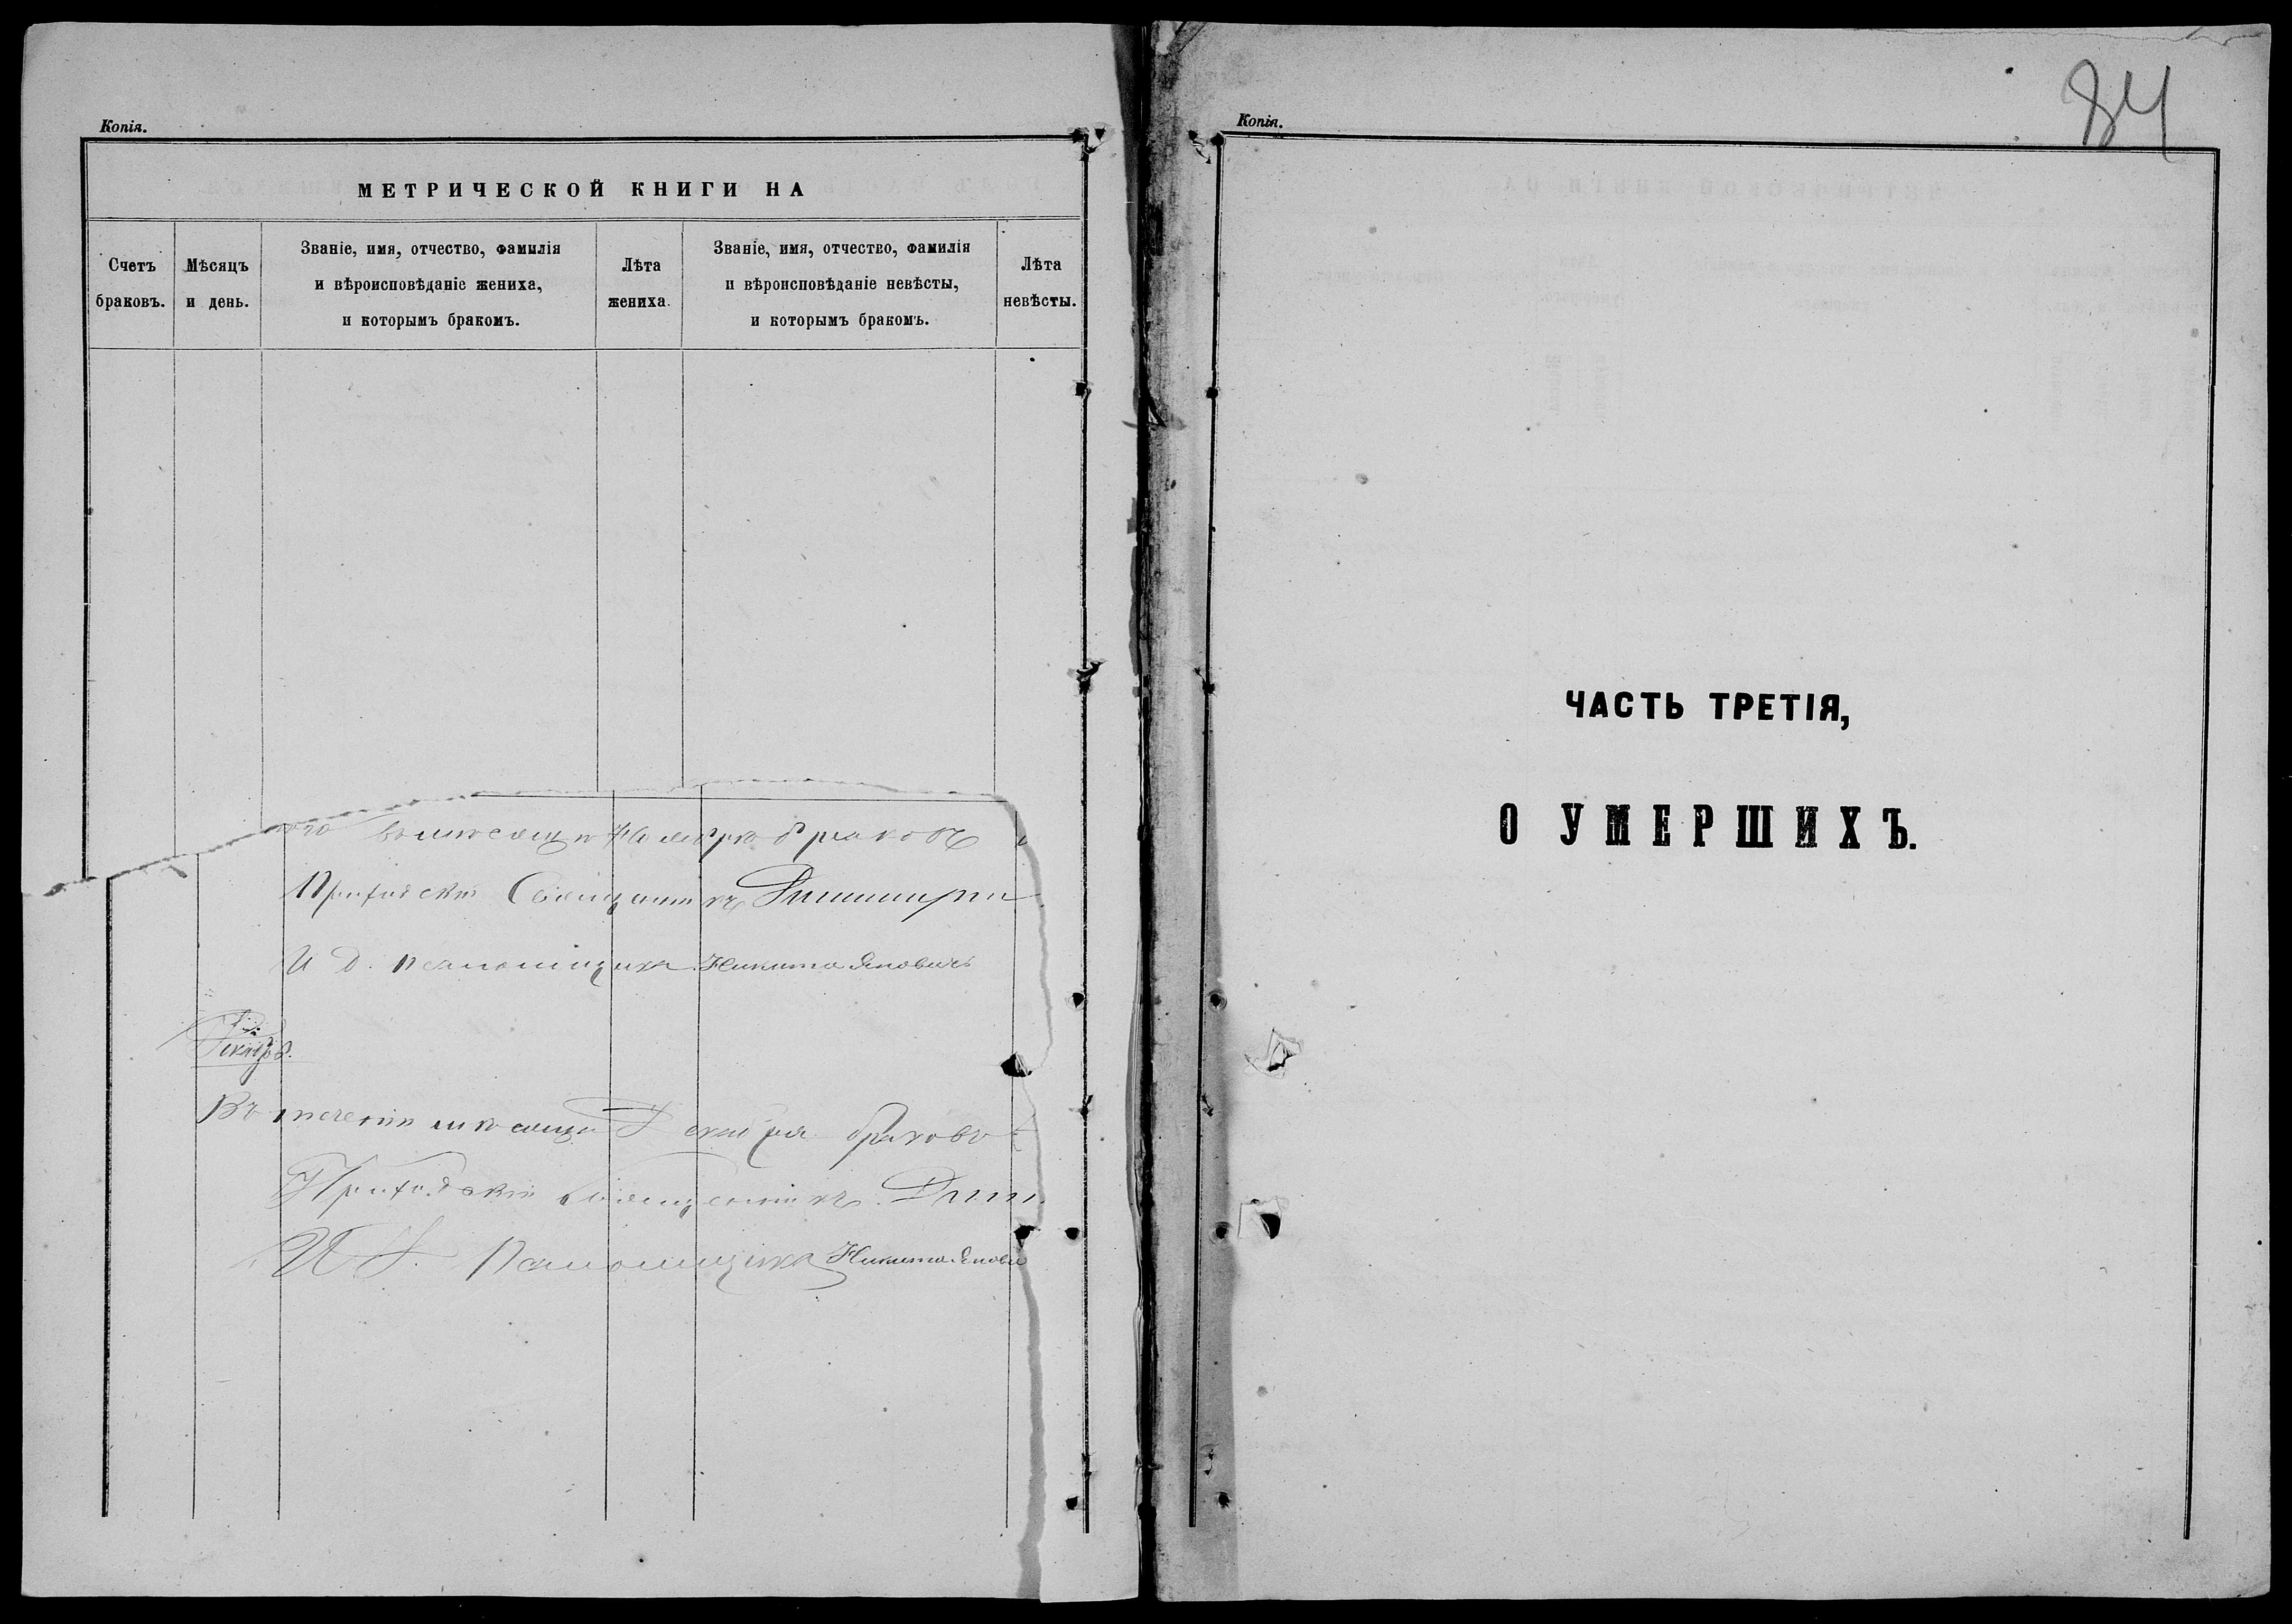 Копія.
МЕТРИЧЕСКОЙ КНИГИ НА
Счетъ браковъ.
Мѣсяцъ и день.
Званіе, имя, отчество, фамилія
и вѣроисповѣданіе жениха,
и которымъ бракомъ.
Лѣта жениха.
Званіе, имя, отчество, фамилія
и вѣроисповѣданіе невѣсты,
и которымъ бракомъ.
Лѣта невѣсты.
браковъ
Приходскій Священникъ
И Д. Псаломщика Никита Яновичъ
Декабр.
Въ теченіи мѣсяца Декабря браковъ
Приходскій Священникъ
И Д. Псаломщика Никита
Копія.
84
ЧАСТЬ ТРЕТІЯ,
О УМЕРШИХЪ.